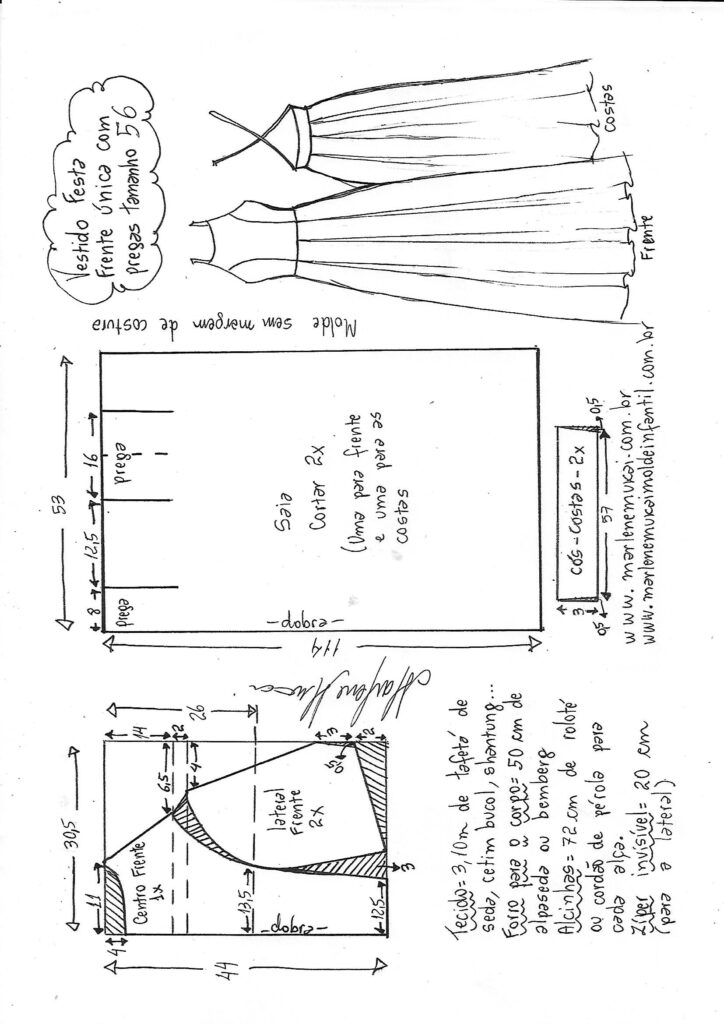 Vestido Festa
Frente única com
pregas tamanho 56
Costas
Frente
Molde sem margem de costura
53
8
12,5
16
prega
prega
Saia
Cortar 2x
(Uma para frente
e uma para as
costas
-dobra-
114
cós-costas-2x
3
0,5
57
0,5
www.marlenemukai.com.br
www.marlenemukaimoldeinfantil.com.br
Marlene Mukai
30,5
11
4
14
2
26
6,5
4
Centro Frente
1x
lateral
Frente
2x
3
2
0,5
13,5
12,5
3
-dobra-
44
Tecido= 3,10m de tafetá de
seda, cetim bucol, shantung...
Forro para o corpo= 50 cm de
alpaseda ou bemberg
Alcinhas= 72 cm de roloté
ou cordão de pérola para
cada alça.
Zíper invisível= 20 cm
(para a lateral)